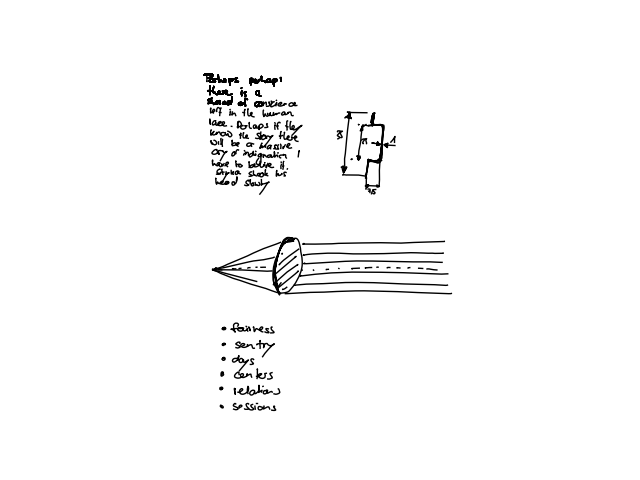 Perhaps perhaps
there is a
shread of conscience
left in the human
race. Perhaps if they
know the story there
will be a massive
cry of indignation I
have to believe it.
shook his
head slowly
• fairness
• sentry
• days
• careless
• relations
• sessions